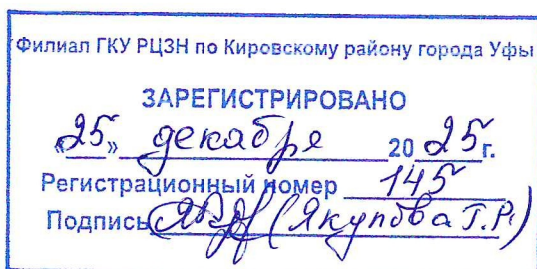 Филиал ГКУ РЦЗН по Кировскому району города Уфы
ЗАРЕГИСТРИРОВАНО
«25» декабря 2025г.
Регистрационный номер 145
Подпись (Якупова Г.Р.)